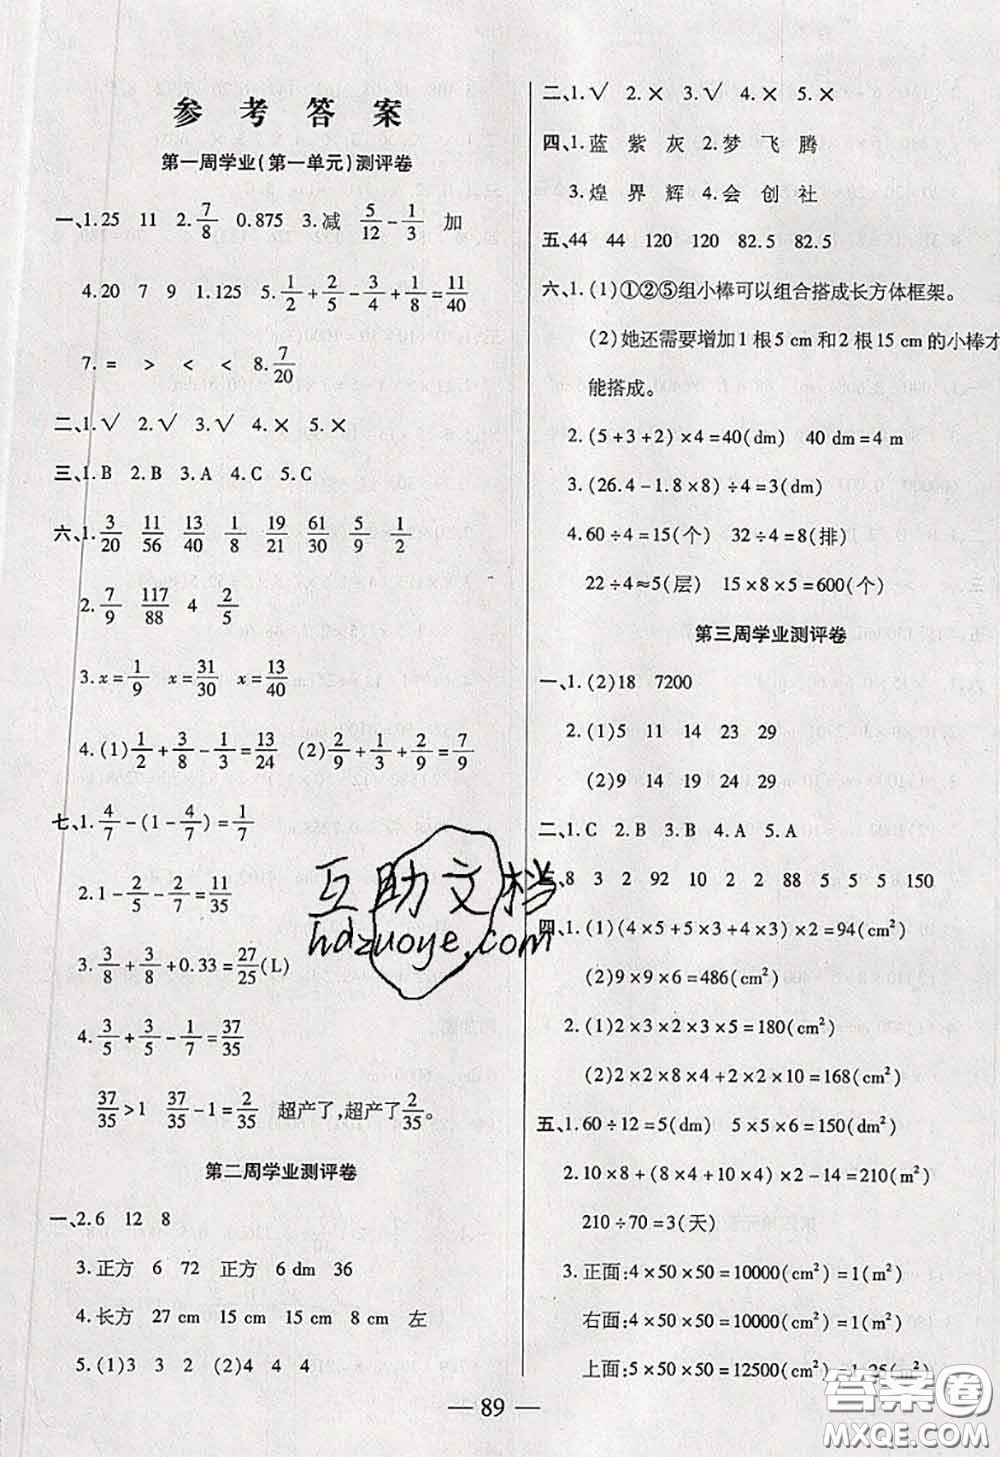 参考答案
第一周学业(第一单元)测评卷
一、1.25 11 2.7/8 0.875 3.减 5/12-1/3 加
4.20 7 9 1.125 5.1/2+2/5-3/4+1/8=11/40
7.= > < < 8.7/20
二、1.√ 2.√ 3.√ 4.× 5.×
三、1.B 2.B 3.A 4.C 5.C
六、1.3/20 11/56 13/40 1/8 19/21 61/30 5/9 1/2
2.7/9 117/88 4 2/5
3.x=1/9 x=31/30 x=13/40
4.(1)1/2+3/8-1/3=13/24 (2)2/9+1/3+2/9=7/9
七、1.4/7-(1-4/7)=1/7
2.1-2/5-2/7=11/35
3.3/8+3/8+0.33=27/25(L)
4.3/5+3/5-1/7=37/35
37/35>1 37/35-1=2/35 超产了,超产了2/35。
第二周学业测评卷
一、2.6 12 8
3.正方 6 72 正方 6 dm 36
4.长方 27 cm 15 cm 15 cm 左
5.(1)3 3 2 (2)4 4 4
二、1.√ 2.× 3.√ 4.× 5.×
四、1.蓝 紫 灰 2.梦 飞 腾
3.煌 界 辉 4.会 创 社
五、44 44 120 120 82.5 82.5
六、1.(1)①②⑤组小棒可以组合搭成长方体框架。
(2)她还需要增加1根5 cm和2根15 cm的小棒才
能搭成。
2.(5+3+2)×4=40(dm) 40 dm=4 m
3.(26.4-1.8×8)÷4=3(dm)
4.60÷4=15(个) 32÷4=8(排)
22÷4≈5(层) 15×8×5=600(个)
第三周学业测评卷
一、1.(2)18 7200
2.(1)5 11 14 23 29
(2)9 14 19 24 29
二、1.C 2.B 3.B 4.A 5.A
三、8 3 2 92 10 2 2 88 5 5 5 150
四、1.(1)(4×5+5×3+4×3)×2=94(cm²)
(2)9×9×6=486(cm²)
2.(1)2×3×2×3×5=180(cm²)
(2)2×2×8×4+2×2×10=168(cm²)
五、1.60÷12=5(dm) 5×5×6=150(dm²)
2.10×8+(8×4+10×4)×2-14=210(m²)
210÷70=3(天)
3.正面:4×50×50=10000(cm²)=1(m²)
右面:4×50×50=10000(cm²)=1(m²)
上面:5×50×50=12500(cm²)=1.25(m²)
— 89 —
互助文档
hdzuoye.com
答案卷
MXQE.COM